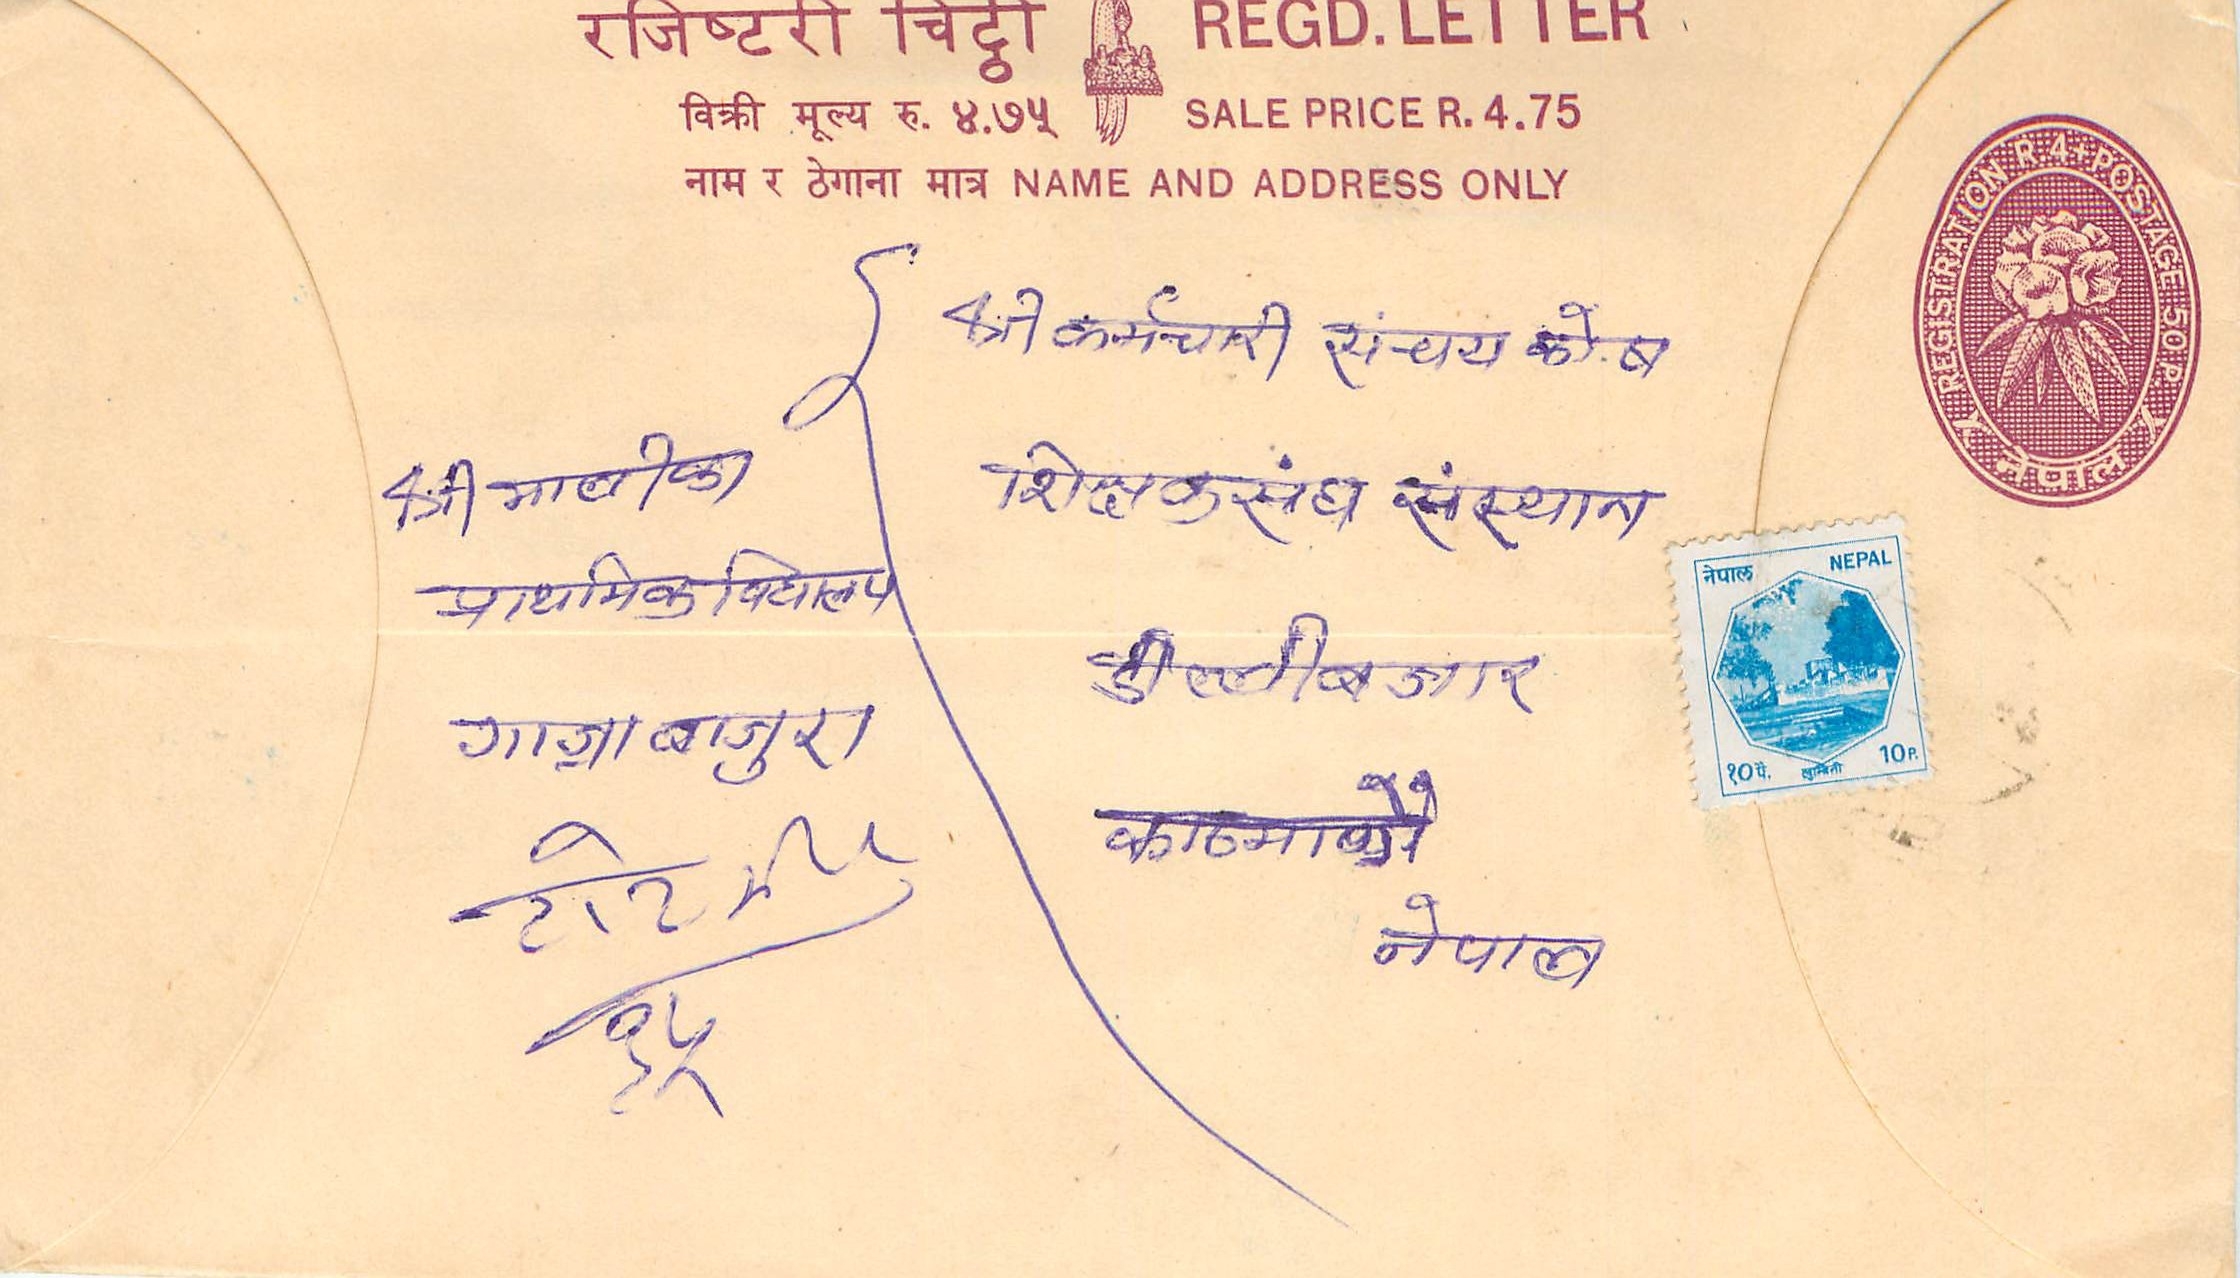 रजिष्टरी चिट्ठी REGD. LETTER
विक्री मूल्य रु. ४.७५ SALE PRICE R. 4.75
नाम र ठेगाना मात्र NAME AND ADDRESS ONLY
REGISTRATION R.4+POSTAGE 50 P.
नेपाल
श्री कर्मचारी संचय कोष
शिक्षक संघ संस्थान
डील्लीबजार
काठमाडौं
नेपाल
श्री मालीका
प्राथमिक विद्यालय
बाजुरा
नेपाल NEPAL
१० पै. लुम्बिनी 10 P.